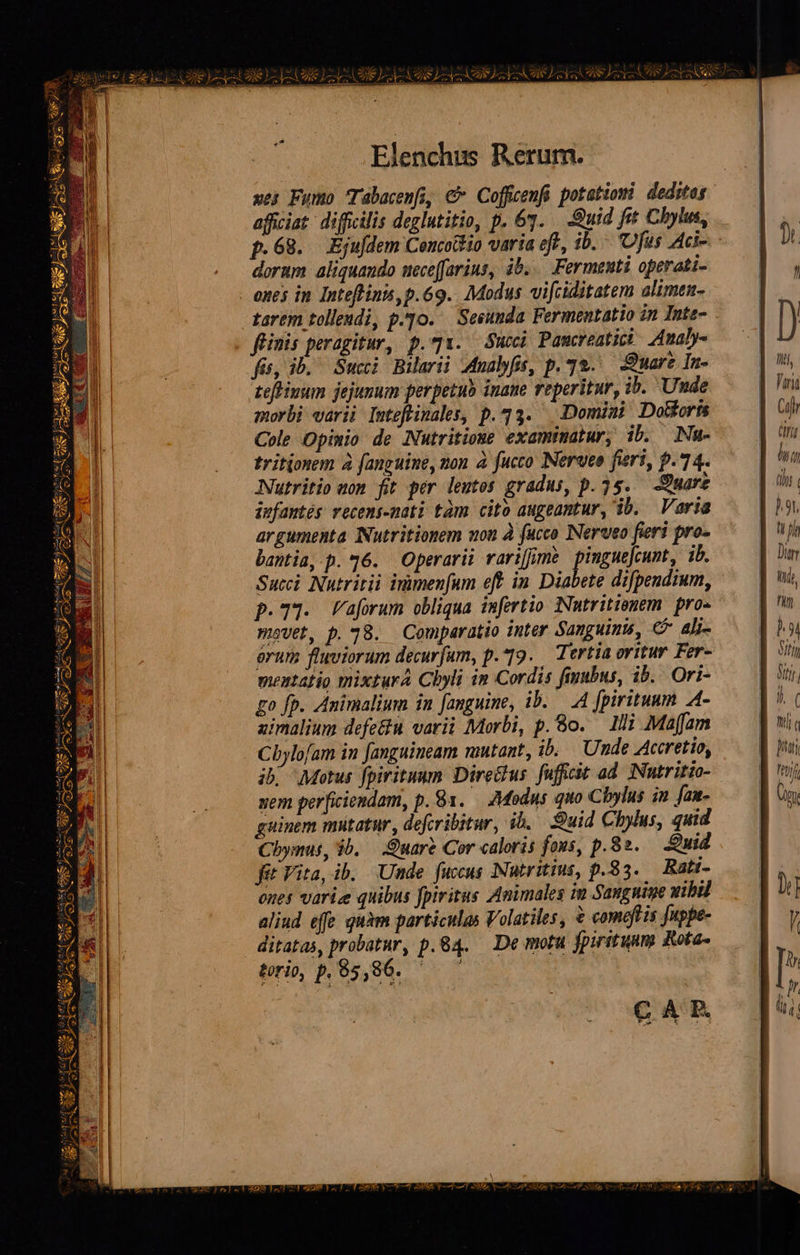 Elenchus Rerum.
nes Fumo Tabacenſi, & Cofficenſi potationi deditos
afficiat difficilis deglutitio, p. 67. Quid ſit Chylus,
p. 68. Ejuſdem Concoctio varia eſt, ib. Uſus Aci-
dorum aliquando neceſſarius, ib. Fermenti operati-
ones in Inteſtinis, p. 69. Modus viſciditatem alimen-
tarem tollendi, p. 70. Secunda Fermentatio in Inte-
ſtinis peragitur, p. 71. Succi Pancreatici Analy-
ſis, ib. Succi Bilarii Analyſis, p. 72. Quarè In-
teſtinum jejunum perpetuò inane reperitur, ib. Unde
morbi varii Inteſtinales, p. 73. Domini Doctoris
Cole Opinio de Nutritione examinatur, ib. Nu-
tritionem à ſanguine, non à ſucco Nerveo fieri, p. 74.
Nutritio non fit per lentos gradus, p. 75. Quarè
infantes recens-nati tàm citò augeantur, ib. Varia
argumenta Nutritionem non à ſucco Nerveo fieri pro-
bantia, p. 76. Operarii rariſſimè pingueſcunt, ib.
Succi Nutritii immenſum eſt in Diabete diſpendium,
p. 77. Vaſorum obliqua inſertio Nutritionem pro-
movet, p. 78. Comparatio inter Sanguinis, & ali-
orum fluviorum decurſum, p. 79. Tertia oritur Fer-
mentatio mixturâ Chyli in Cordis ſinubus, ib. Ori-
go ſp. Animalium in ſanguine, ib. A ſpirituum A-
nimalium defectu varii Morbi, p. 80. Illi Maſſam
Chyloſam in ſanguineam mutant, ib. Unde Accretio,
ib. Motus ſpirituum Directus ſufficit ad Nutritio-
nem perficiendam, p. 81. Modus quo Chylus in ſan-
guinem mutatur, deſcribitur, ib. Quid Chylus, quid
Chymus, ib. Quarè Cor caloris fons, p. 82. Quid
ſit Vita, ib. Unde ſuccus Nutritius, p. 83. Rati-
ones variæ quibus ſpiritus Animales in Sanguine nihil
aliud eſſe quàm particulas Volatiles, è comeſtis ſuppe-
ditatas, probatur, p. 84. De motu ſpirituum Rota-
torio, p. 85, 86.
CAP.